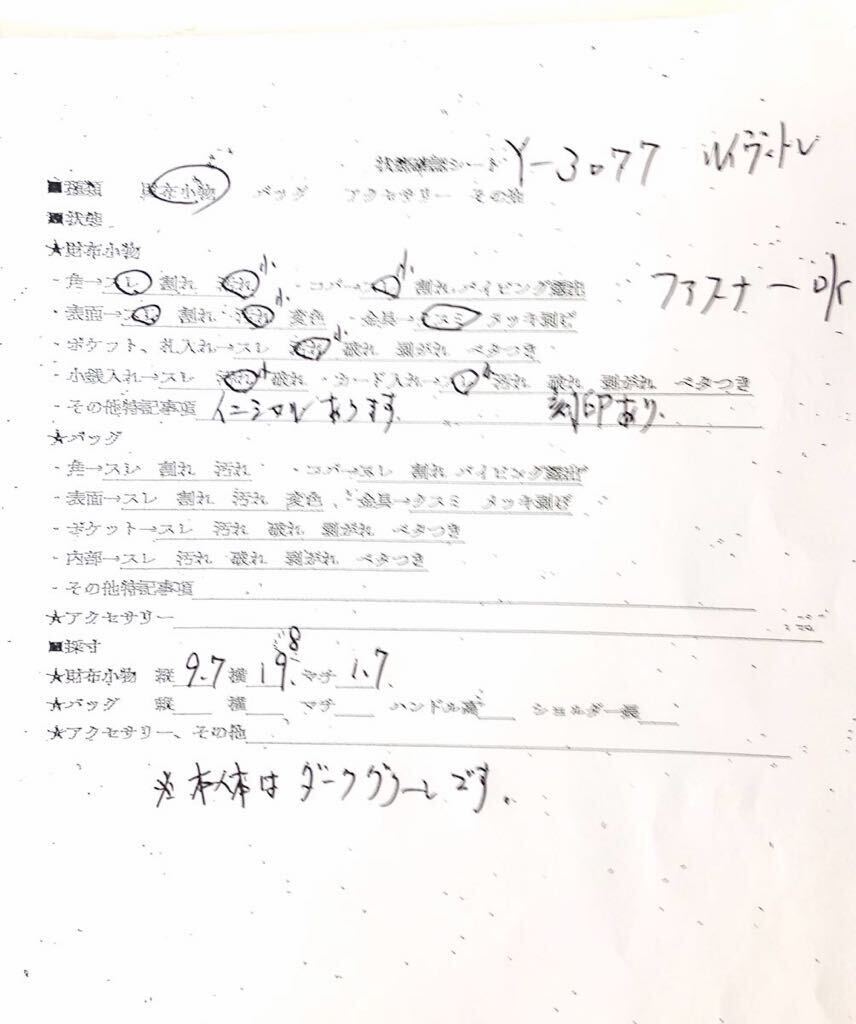 状態確認シート Y-3077 ルイヴィトン
■種類 財布小物 バッグ アクセサリー その他
■状態
★財布小物
・角→スレ 割れ 汚れ小 ・コバ→スレ小 割れ パイピング露出 ファスナーok
・表面→スレ 割れ 汚れ小 変色 ・金具→クスミ メッキ剥げ
・ポケット、札入れ→スレ 汚れ小 破れ 剥がれ ベタつき
・小銭入れ→スレ 汚れ小 破れ ・カード入れ→スレ小 汚れ 破れ 剥がれ ベタつき
・その他特記事項 イニシャルあります 刻印あり.
★バッグ
・角→スレ 割れ 汚れ ・コバ→スレ 割れ パイピング露出
・表面→スレ 割れ 汚れ 変色 ・金具→クスミ メッキ剥げ
・ポケット→スレ 汚れ 破れ 剥がれ ベタつき
・内部→スレ 汚れ 破れ 剥がれ ベタつき
・その他特記事項
★アクセサリー
■採寸
★財布小物 縦 9.7 横 19.8 マチ 1.7
★バッグ 縦 横 マチ ハンドル高 ショルダー長
★アクセサリー、その他
※ 本体はダークグリーンです。